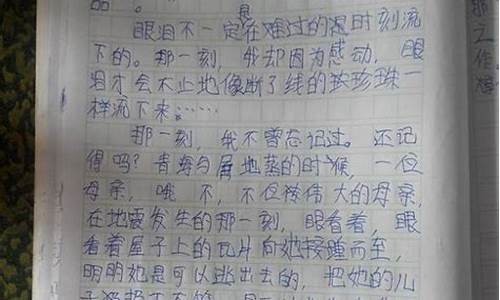 品。
眼泪不一定在难过的是时刻流
下的。那一刻,我却因为感动,眼
泪才会不止地像断了线的珍珠一
样流下来……
那一刻,我不曾忘记过。还记
得吗?青海与 地 的时候,一位
母亲,哦 不,不但 伟大的母亲,
在地震发生的那一刻,眼看着,眼
看着屋子上的瓦片向她接踵而至,
明明她是可以逃出去的,把她的儿
子
作。